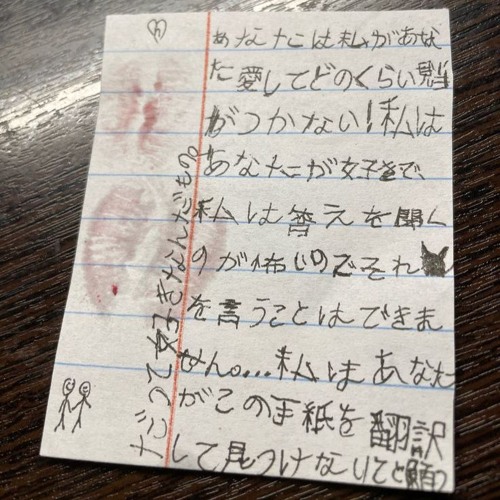 あなたは私があな
た愛してどのくらい見当
がつかない!私は
あなたが好きで、
私は答えを聞く
のが怖いのでそれ
を言うことはできま
せん。...私はあなた
がこの手紙を翻訳
して見つけないでと願っ
だって好きなんだもの